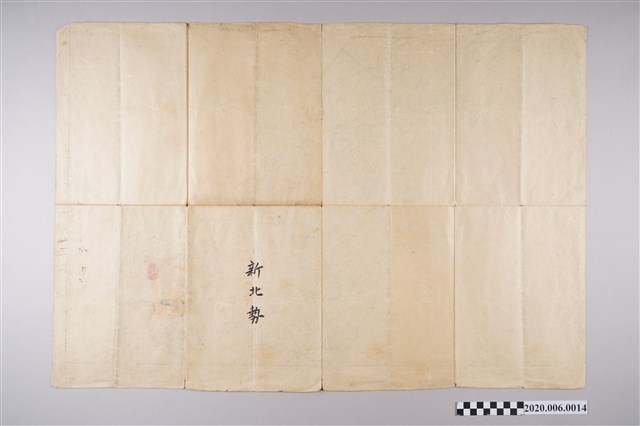 新北勢
2020.006.0014